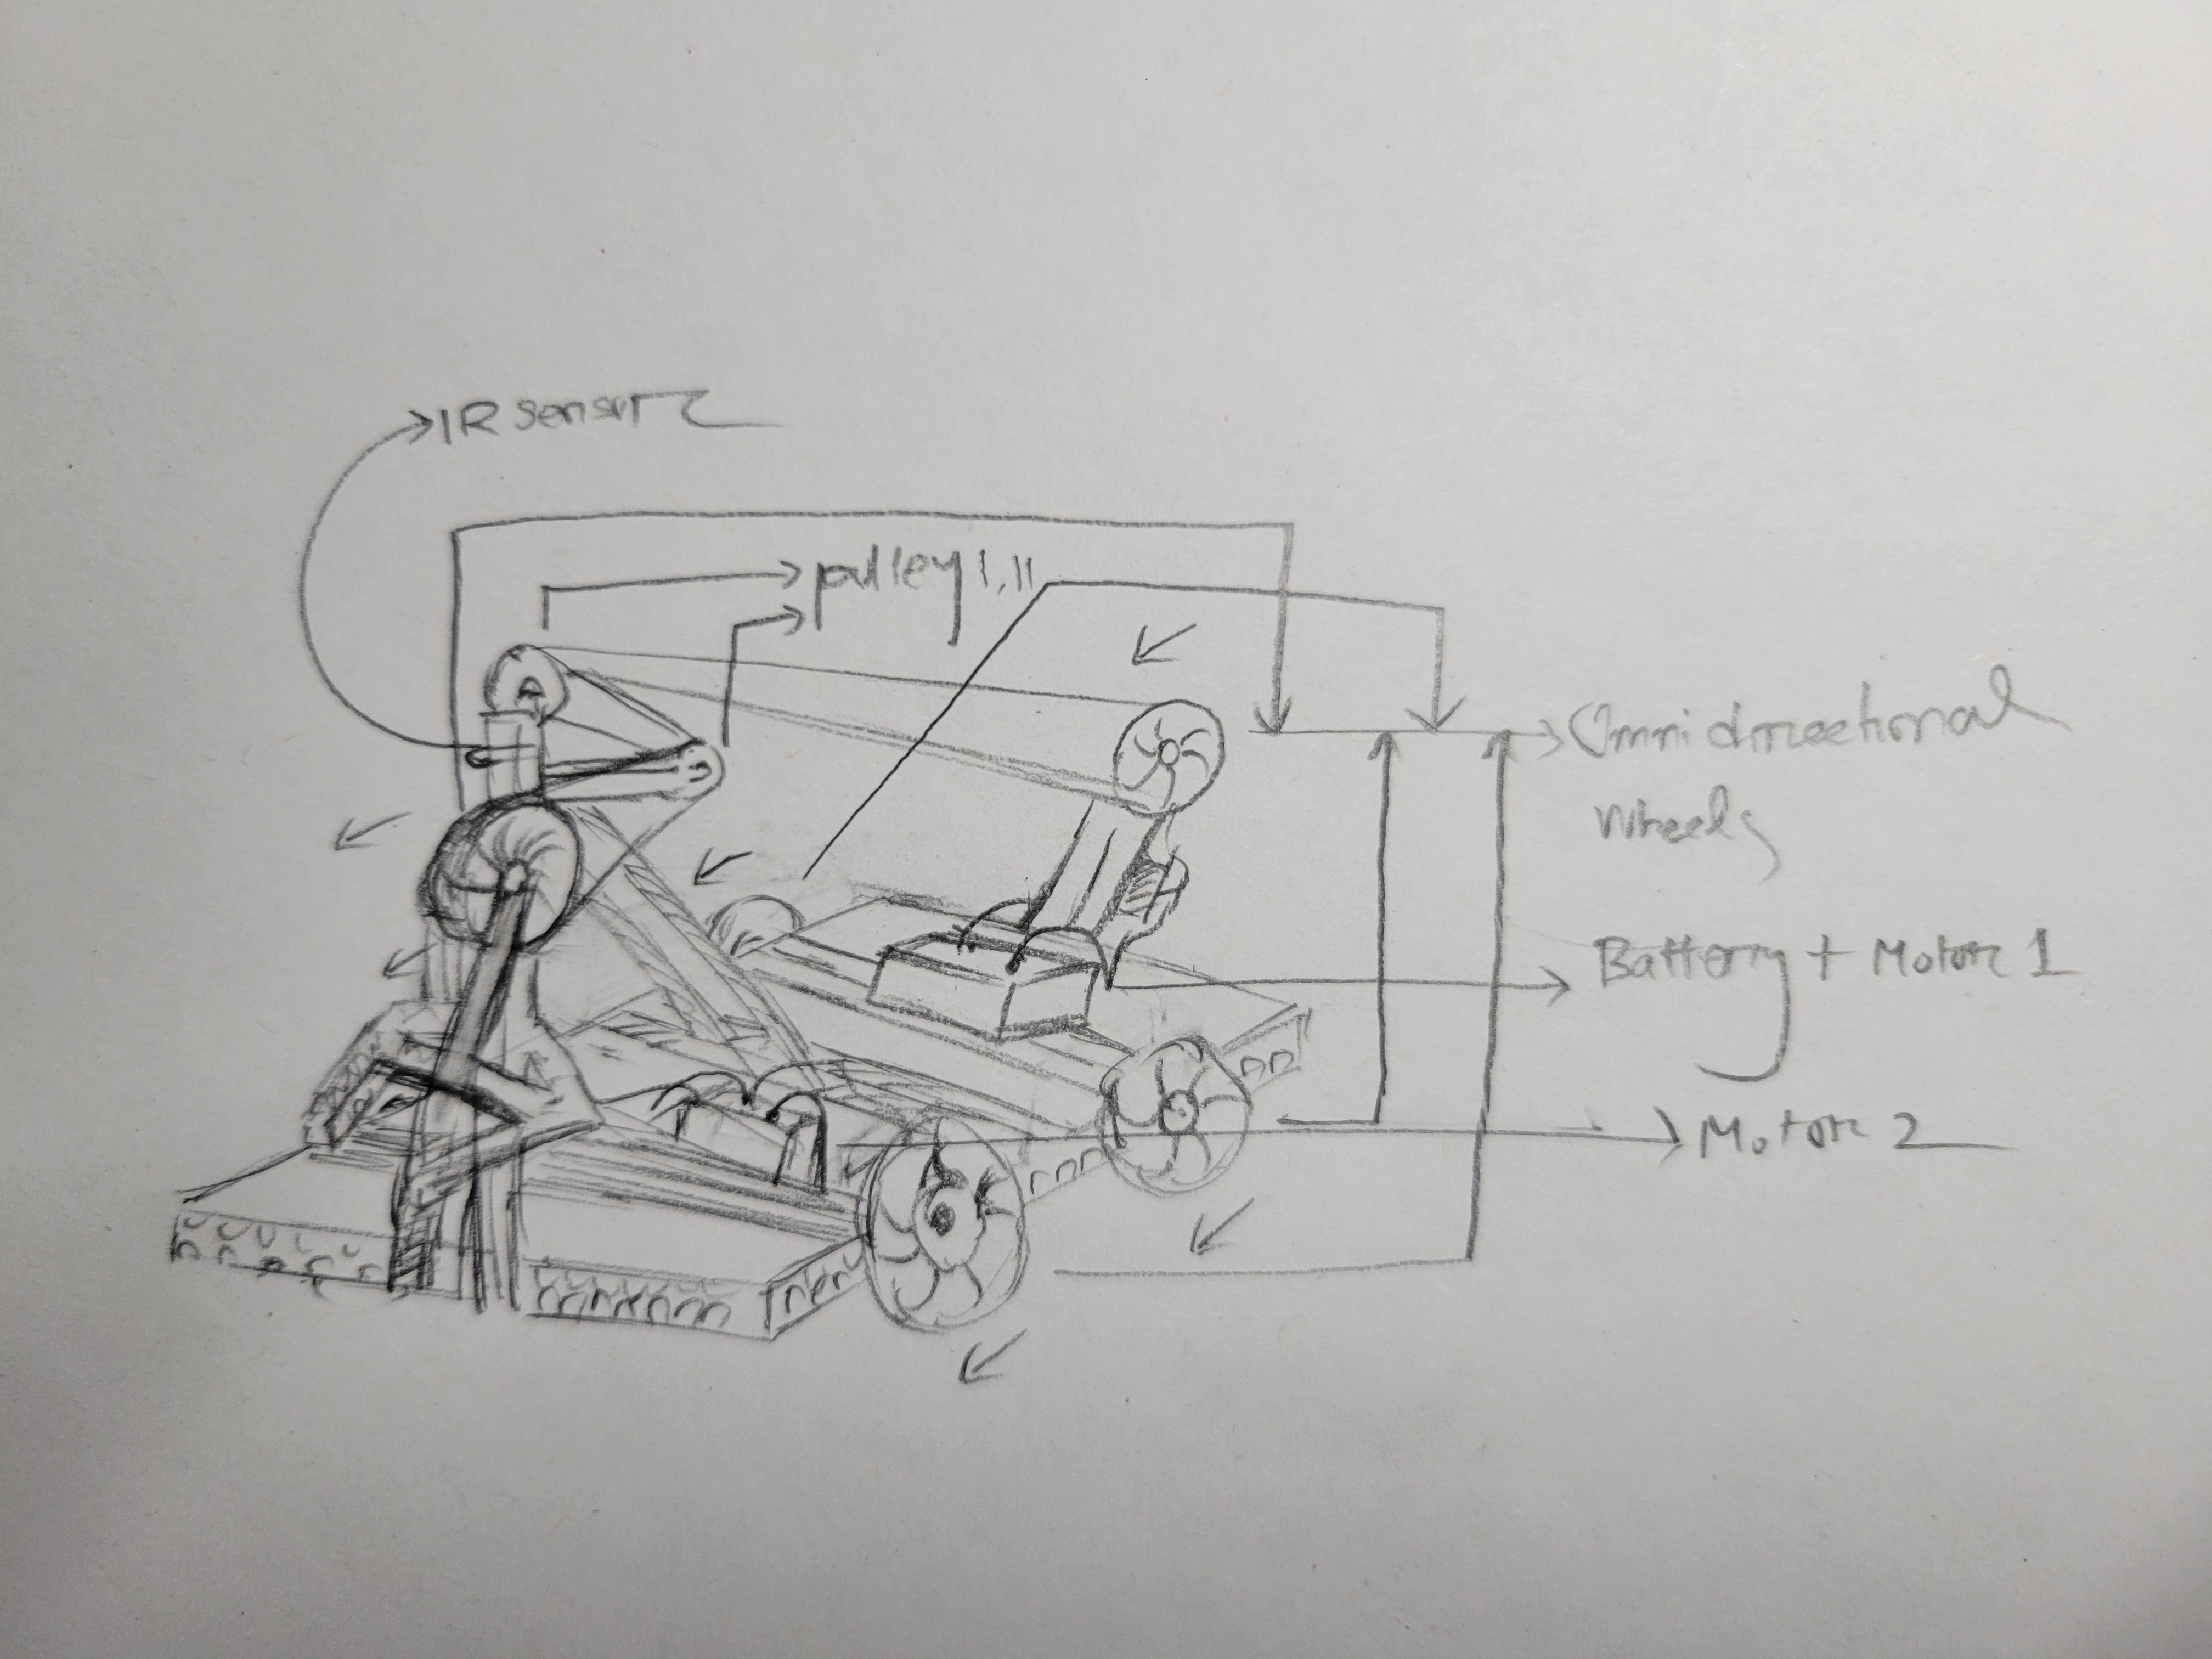 IR sensor
pulley I, II
Omnidirectional
wheels
Battery + Motor 1
Motor 2